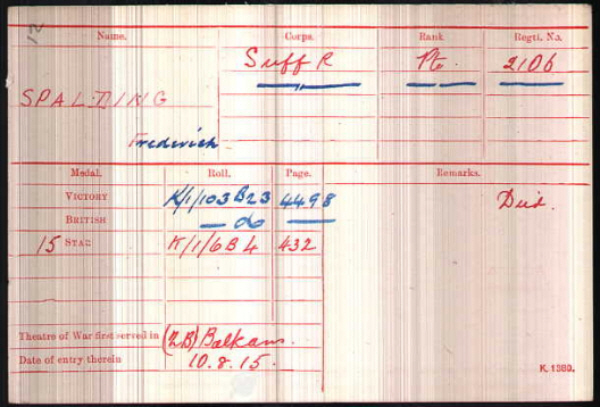 12
Name. Corps. Rank Regtl. No.
Suff R Pte. 2106
SPALDING
Frederick
Medal. Roll. Page. Remarks.
VICTORY K/1/103 B23 4498 Died.
BRITISH — do —
15 STAR K/1/6 B 4 432
Theatre of War first served in (2B) Balkans.
Date of entry therein 10.8.15.
K. 1380.